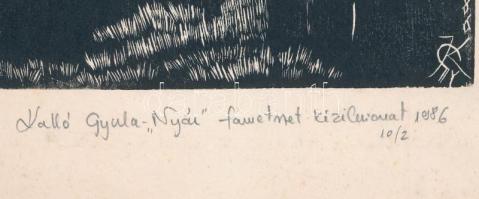 Kalló Gyula - „Nyár” fametszet kézilenyomat 1986
10/2